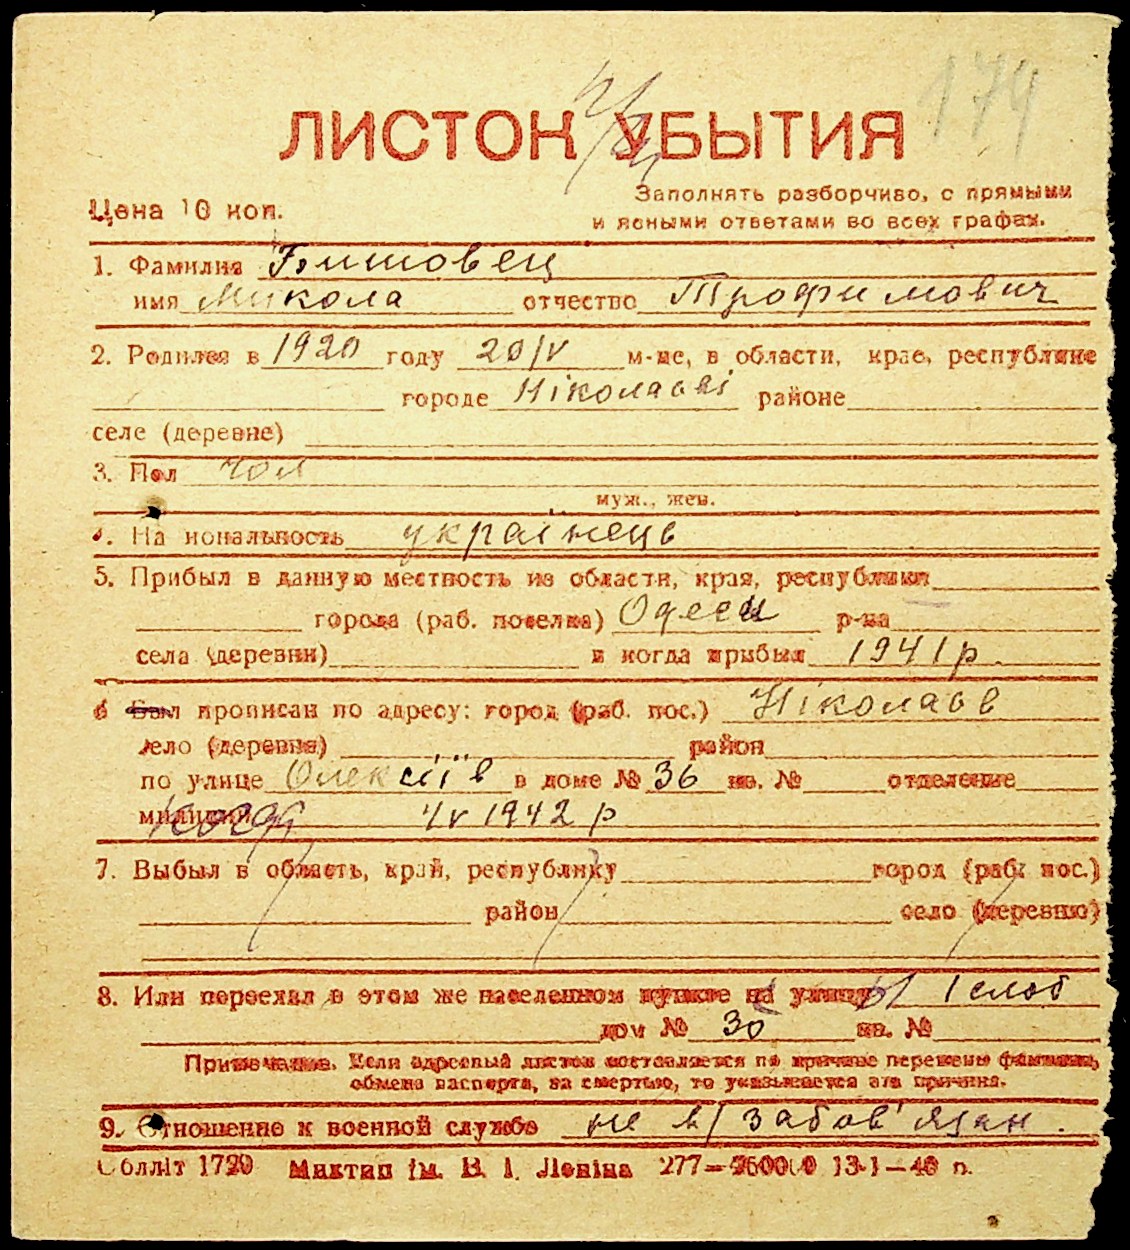 174
ЛИСТОК УБЫТИЯ
Цена 10 коп.
Заполнять разборчиво, с прямыми
и ясными ответами во всех графах.
1. Фамилия
имя Микола отчество Трофимович
2. Родился в 1920 году 20/V м-це, в области, крае, республике
городе Ніколаєві районе
селе (деревне)
3. Пол чол
муж., жен.
4. На иональность українець
5. Прибыл в данную местность из области, края, республики
города (раб. поселка) Одеси р-на
села (деревни) и когда прибыл 1941 р.
6 Был прописан по адресу: город (раб. пос.) Ніколаєв
село (деревня) район
по улице Олексіїв в доме № 36 кв. № отделение
милиции когда 4/V 1942 р
7. Выбыл в область, край, республику город (раб. пос.)
район село (деревню)
8. Или переехал в этом же населенном пункте на улицу 1 слоб
дом № 30 кв. №
Примечание. Если адресный листок составляется по причине перемены фамилии,
обмена паспорта, за смертью, то указывается эта причина.
9. Отношение к военной службе не в/забов'язан.
Облліт 1720 Миктип ім. В. І. Леніна 277— 13-1—40 п.